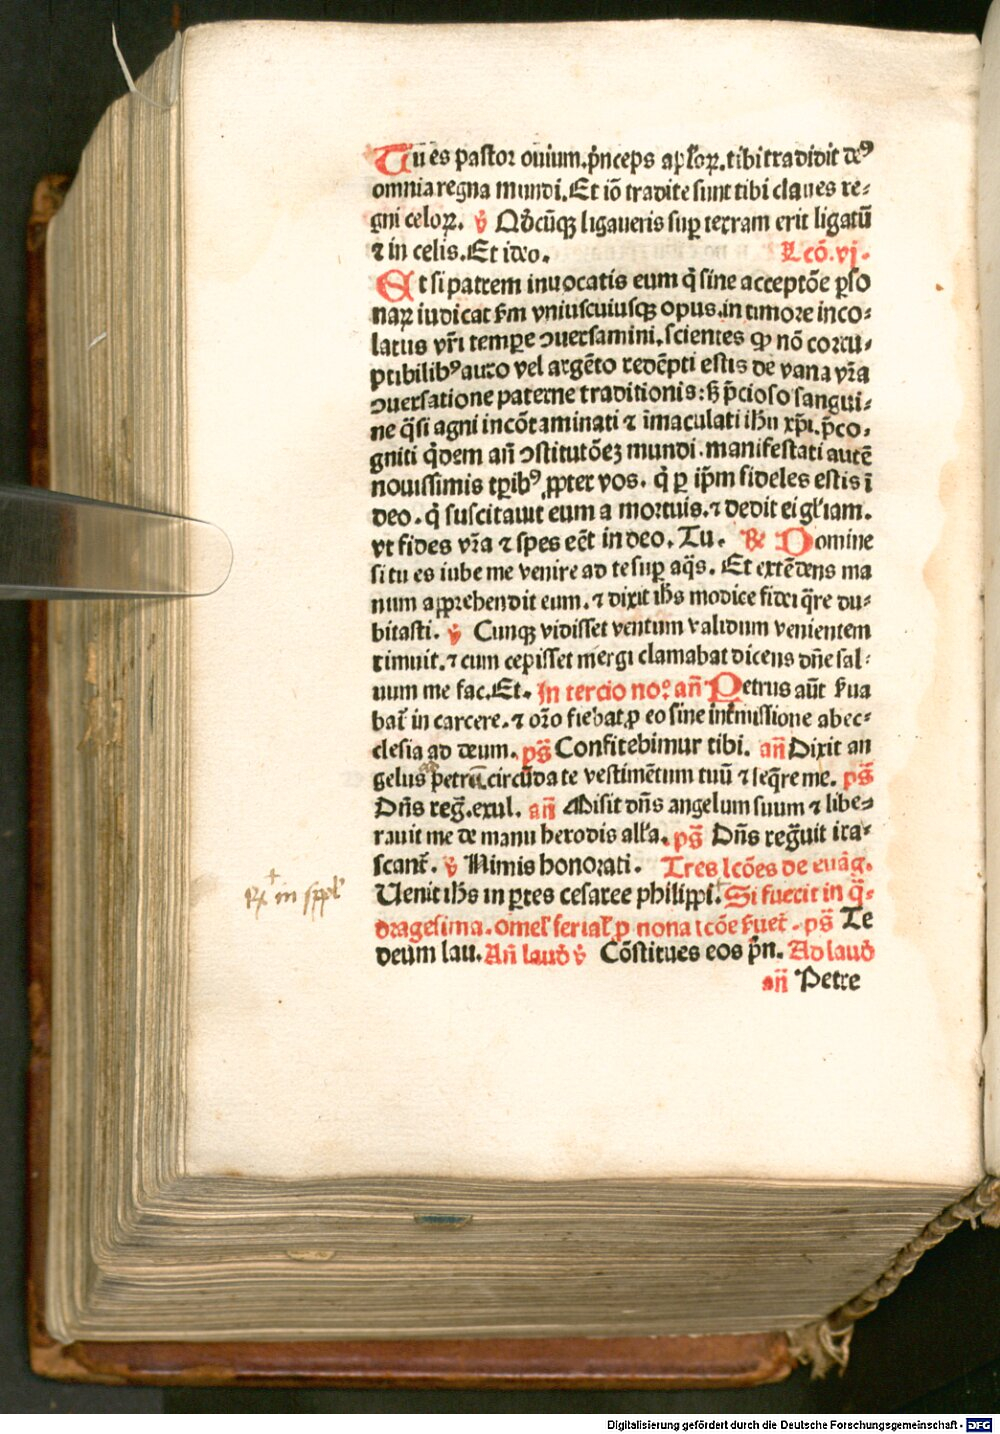 Tu es pastor ouium.p̄nceps apl'oꝝ.tibi tradidit de⁹
omnia regna mundi.Et iō tradite sunt tibi claues re⸗
gni celoꝝ. v̄ Qd̄cūqꝫ ligaueris suꝑ terram erit ligatū
⁊ in celis.Et ideo. Lcō.vj.
Et si patrem inuocatis eum q̄ sine acceptōe ꝑso
naꝝ iudicat s̄m vniuscuiusqꝫ opus.in timore inco⸗
latus vr̄i tempe ꝯuersamini.scientes ꝙ nō corru⸗
ptibilib⁹ auro vel argēto redēpti estis de vana vr̄a
ꝯuersatione paterne traditionis:s̄ p̄cioso sangui⸗
ne q̄si agni incōtaminati ⁊ īmaculati ih̄u xp̄i.p̄co⸗
gniti q̄dem an̄ ꝯstitutōeꝫ mundi.manifestati autē
nouissimis tꝑib⁹ ꝓpter vos. q̄ ꝑ ip̄m fideles estis ī
deo.q̄ suscitauit eum a mortuis.⁊ dedit ei gl'iam.
vt fides vr̄a ⁊ spes eēt in deo.Tu. ℟ Domine
si tu es iube me venire ad te suꝑ aq̄s. Et extēdens ma
num apprehendit eum.⁊ dixit ih̄s modice fidei q̄re du⸗
bitasti. v̄ Cunqꝫ vidisset ventum validum venientem
timuit.⁊ cum cepisset mergi clamabat dicens dn̄e sal⸗
uum me fac.Et. In tercio no⁹.an̄ Petrus aūt s̄ua
bat̄ in carcere.⁊ or̄o fiebat ꝓ eo sine int̄missione ab ec⸗
clesia ad deum.ps̄ Confitebimur tibi. an̄ Dixit an
gelus ad petrū.circūda te vestimētum tuū ⁊ seq̄re me. ps̄
Dn̄s reḡ.exul. an̄ Misit dn̄s angelum suum ⁊ libe⸗
rauit me de manu herodis all'a.ps̄ Dn̄s reḡuit ira⸗
scant̄. v̄ Nimis honorati. Tres lcōes de euāg.
Uenit ih̄s in ꝑtes cesaree philippi.Si fuerit in q̄⸗
dragesima.omel' ferial' ꝓ nona lcōe s̄uet̄.ps̄ Te
deum lau.An̄ laud̄ v̄ Cōstitues eos p̄n. Ad laud̄
an̄ Petre
℟ in sppl'
Digitalisierung gefördert durch die Deutsche Forschungsgemeinschaft - DFG